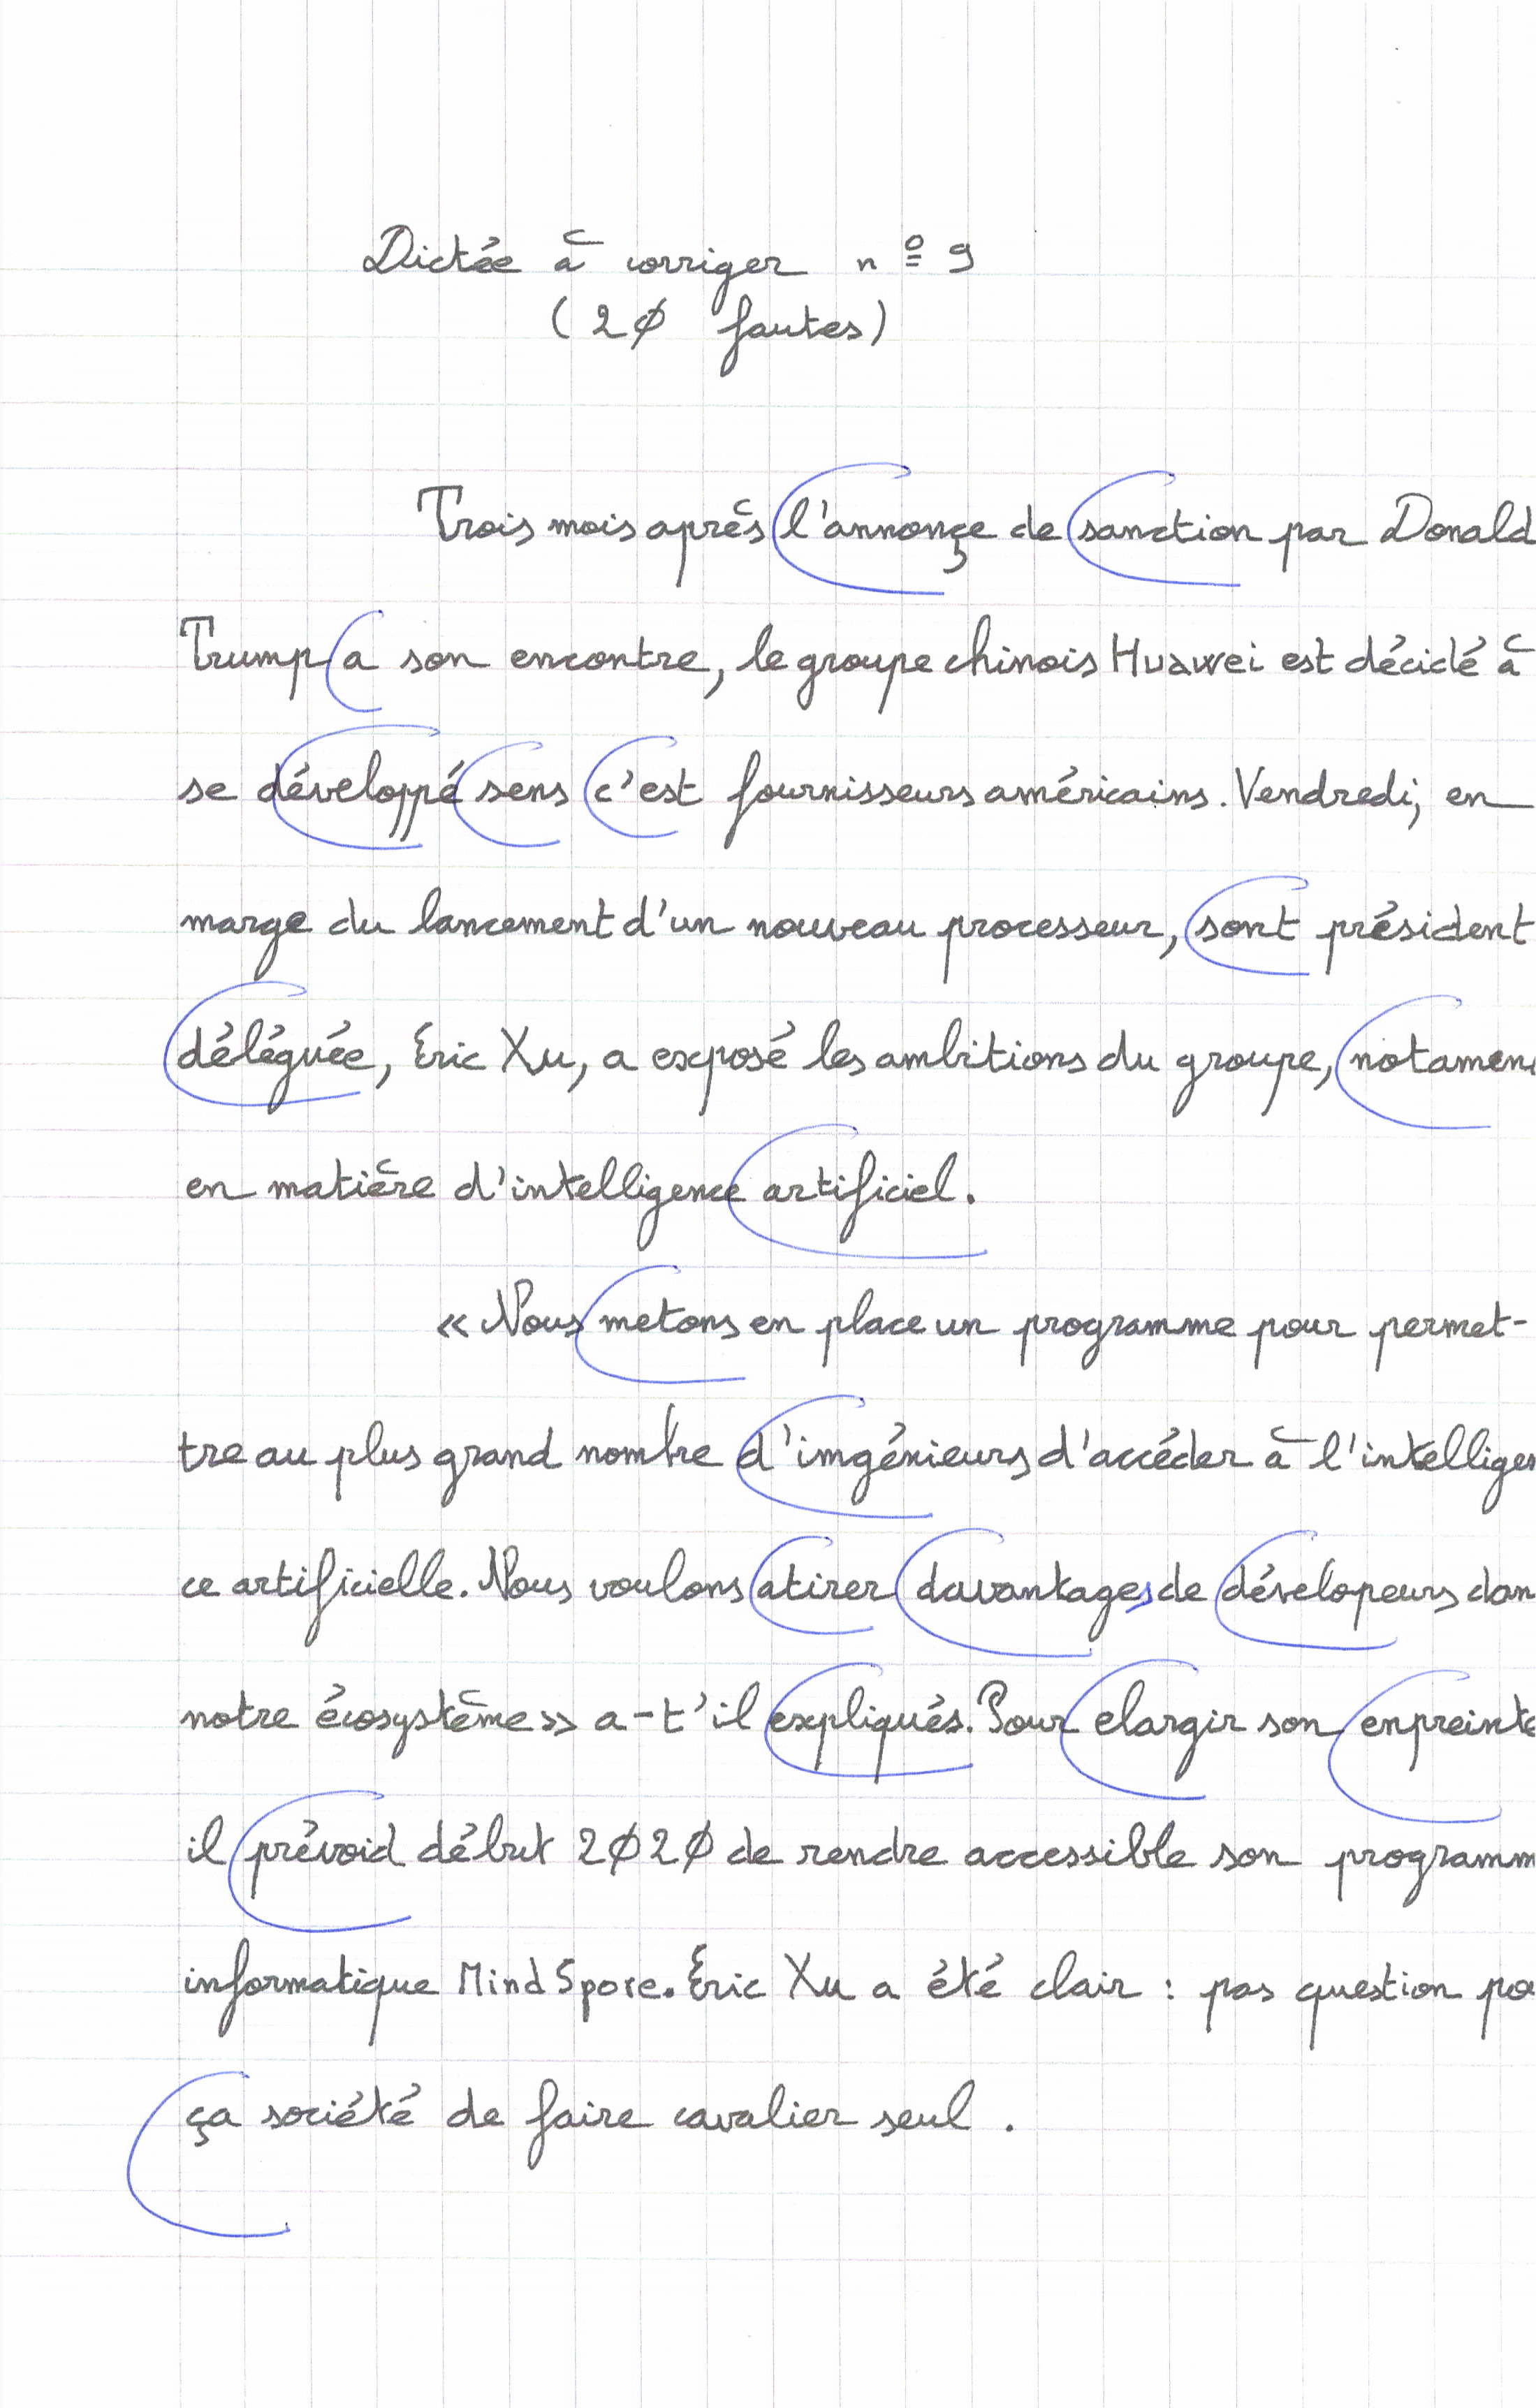 Dictée à corriger n° 9
(20 fautes)
Trois mois après l'annonçe de sanction par Donald
Trump a son encontre, le groupe chinois Huawei est décidé à
se développé sens c'est fournisseurs américains. Vendredi, en
marge du lancement d'un nouveau processeur, sont président
déléguée, Éric Xu, a exposé les ambitions du groupe, notamen
en matière d'intelligence artificiel.
« Nous metons en place un programme pour permet-
tre au plus grand nombre d'imgénieurs d'accéder à l'intelligen
ce artificielle. Nous voulons atirer davantages de dévelopeurs dan
notre écosystème » a-t'il expliqués. Pour elargir son enpreinte
il prévoid début 2020 de rendre accessible son programm
informatique MindSpore. Éric Xu a été clair : pas question po
ça société de faire cavalier seul .